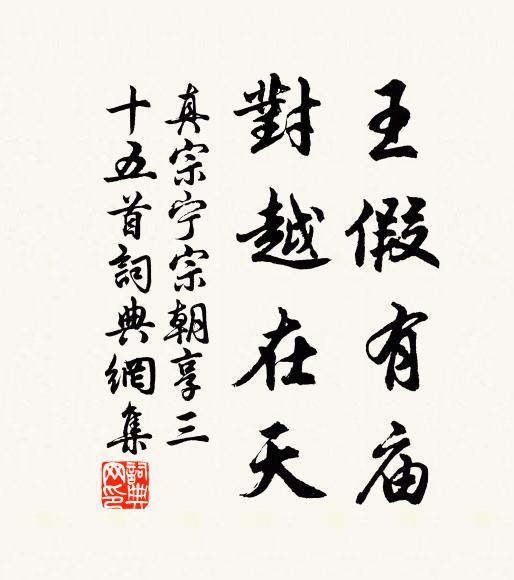 王假有庙
對越在天
真宗宁宗朝享三
十五首詞典網集